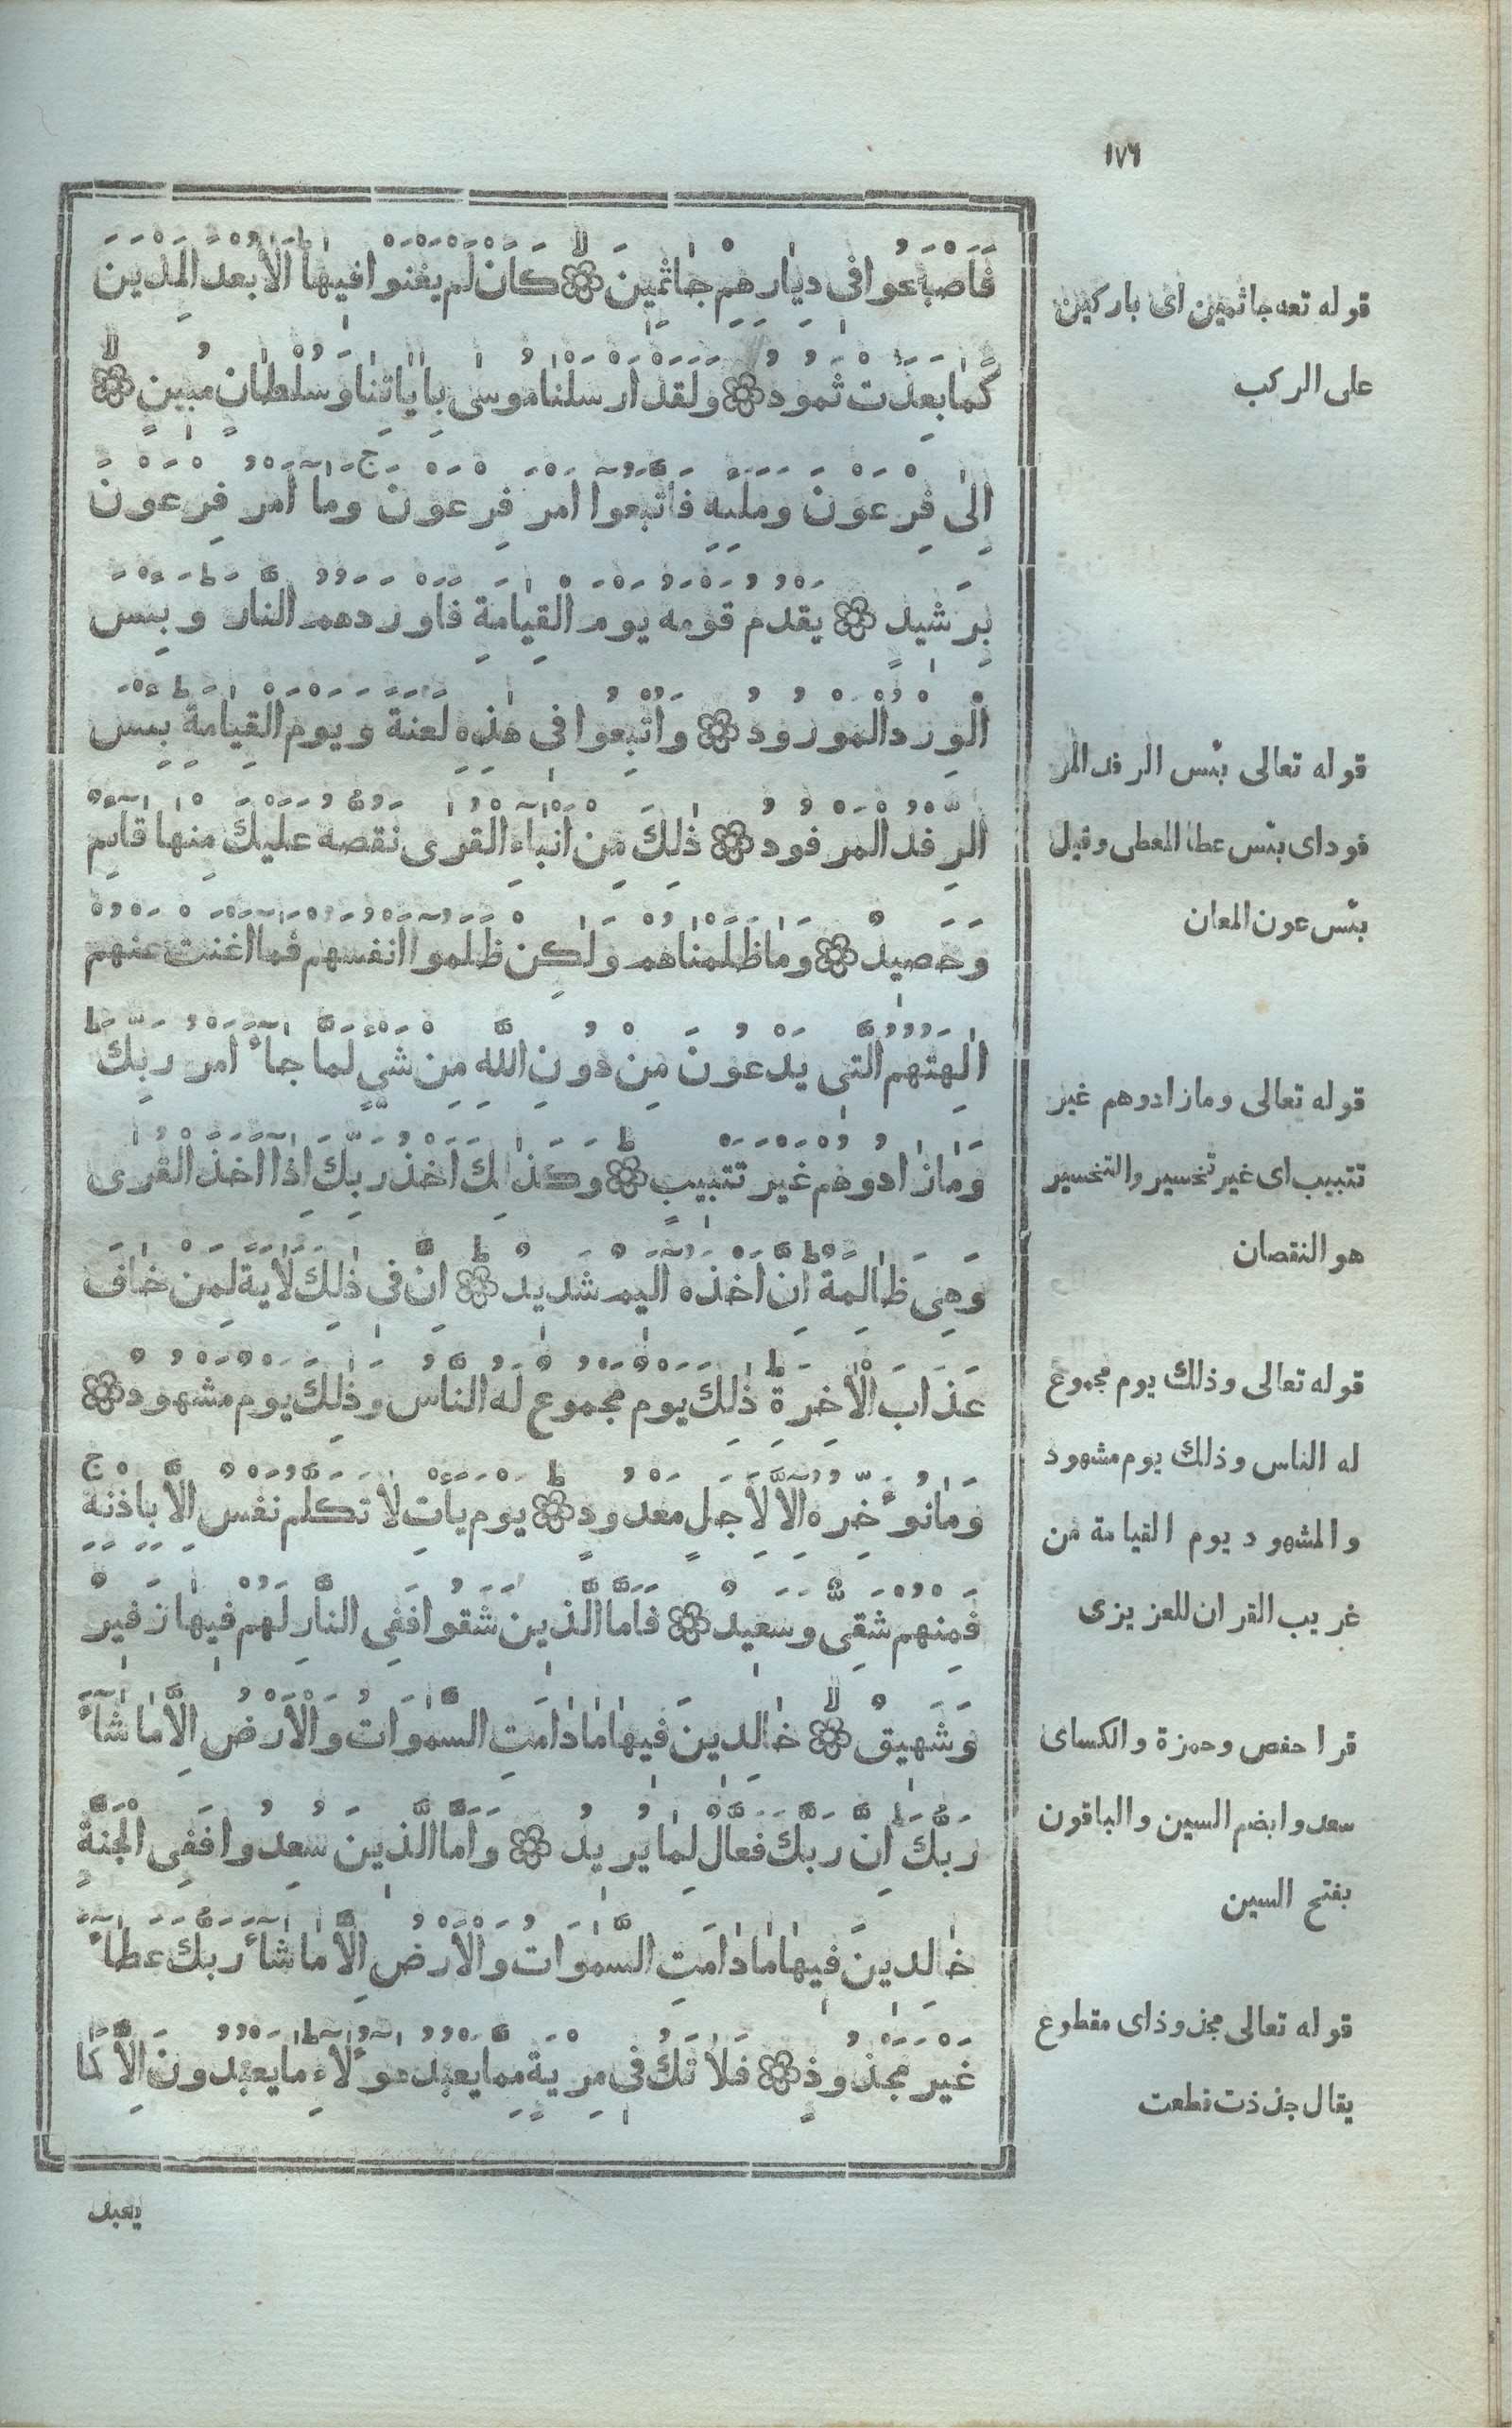 ١٧٦
فَاَصْبَحُوا فٖى دِيٰارِهِمْ جٰاثِمٖينَ ۙ كَاَنْ لَمْ يَغْنَوْا فٖيهٰا ؕ اَلٰا بُعْدًا لِمَدْيَنَ
كَمٰا بَعِدَتْ ثَمُودُ وَلَقَدْ اَرْسَلْنٰا مُوسٰى بِاٰيٰاتِنٰا وَسُلْطٰانٍ مُبٖينٍ ۙ
اِلٰى فِرْعَوْنَ وَمَلَئِهٖ فَاتَّبَعُوٓا اَمْرَ فِرْعَوْنَ ۚ وَمٰٓا اَمْرُ فِرْعَوْنَ
بِرَشٖيدٍ يَقْدُمُ قَوْمَهُ يَوْمَ الْقِيٰامَةِ فَاَوْرَدَهُمُ النَّارَ ؕ وَبِئْسَ
الْوِرْدُ الْمَوْرُودُ وَاُتْبِعُوا فٖى هٰذِهٖ لَعْنَةً وَيَوْمَ الْقِيٰامَةِ ؕ بِئْسَ
الرِّفْدُ الْمَرْفُودُ ذٰلِكَ مِنْ اَنْبٰٓاءِ الْقُرٰى نَقُصُّهُ عَلَيْكَ مِنْهٰا قٰٓائِمٌ
وَحَصٖيدٌ وَمٰا ظَلَمْنٰاهُمْ وَلٰكِنْ ظَلَمُوٓا اَنْفُسَهُمْ فَمٰٓا اَغْنَتْ عَنْهُمْ
اٰلِهَتُهُمُ الَّتٖى يَدْعُونَ مِنْ دُونِ اللّٰهِ مِنْ شَيْءٍ لَمَّا جٰٓاءَ اَمْرُ رَبِّكَ ؕ
وَمٰا زٰادُوهُمْ غَيْرَ تَتْبٖيبٍ ؕ وَكَذٰلِكَ اَخْذُ رَبِّكَ اِذٰٓا اَخَذَ الْقُرٰى
وَهِىَ ظٰالِمَةٌ ؕ اِنَّ اَخْذَهُٓ اَلٖيمٌ شَدٖيدٌ ؕ اِنَّ فٖى ذٰلِكَ لَاٰيَةً لِمَنْ خٰافَ
عَذَابَ الْاٰخِرَةِ ؕ ذٰلِكَ يَوْمٌ مَجْمُوعٌ لَهُ النَّاسُ وَذٰلِكَ يَوْمٌ مَشْهُودٌ
وَمٰا نُؤَخِّرُهُٓ اِلَّا لِاَجَلٍ مَعْدُودٍ ؕ يَوْمَ يَأْتِ لٰا تَكَلَّمُ نَفْسٌ اِلَّا بِاِذْنِهٖ ۚ
فَمِنْهُمْ شَقِىٌّ وَسَعٖيدٌ فَاَمَّا الَّذٖينَ شَقُوا فَفِى النَّارِ لَهُمْ فٖيهٰا زَفٖيرٌ
وَشَهٖيقٌ ۙ خٰالِدٖينَ فٖيهٰا مٰا دٰامَتِ السَّمٰوَاتُ وَالْاَرْضُ اِلَّا مٰا شٰٓاءَ
رَبُّكَ ؕ اِنَّ رَبَّكَ فَعَّالٌ لِمٰا يُرٖيدُ وَاَمَّا الَّذٖينَ سُعِدُوا فَفِى الْجَنَّةِ
خٰالِدٖينَ فٖيهٰا مٰا دٰامَتِ السَّمٰوَاتُ وَالْاَرْضُ اِلَّا مٰا شٰٓاءَ رَبُّكَ عَطٰٓاءً
غَيْرَ مَجْذُوذٍ فَلٰا تَكُ فٖى مِرْيَةٍ مِمَّا يَعْبُدُ هٰٓؤُلٰٓاءِ ؕ مٰا يَعْبُدُونَ اِلَّا كَمٰا
يعبد
قوله تعه جاثمين اى باركين
على الركب
قوله تعالى بئس الرفد المر
فود اى بئس عطا المعطى وقيل
بئس عون المعان
قوله تعالى وما زادوهم غير
تتبيب اى غير تخسير والتخسير
هو النقصان
قوله تعالى وذلك يوم مجموع
له الناس وذلك يوم مشهود
والمشهود يوم القيامة من
غريب القران للعزيزى
قرا حفص وحمزة والكساى
سعدوا بضم السين والباقون
بفتح السين
قوله تعالى مجذوذ اى مقطوع
يقال جذذت قطعت